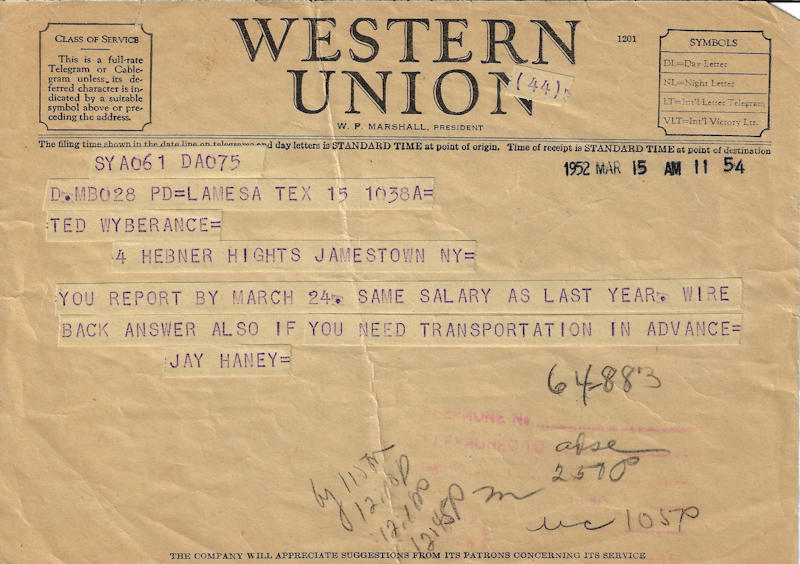 WESTERN
UNION
1201
(44).
W. P. MARSHALL, PRESIDENT
CLASS OF SERVICE
This is a full-rate
Telegram or Cable-
gram unless its de-
ferred character is in-
dicated by a suitable
symbol above or pre-
ceding the address.
SYMBOLS
DL=Day Letter
NL=Night Letter
LT=Int'l Letter Telegram
VLT=Int'l Victory Ltr.
The filing time shown in the date line on telegrams and day letters is STANDARD TIME at point of origin. Time of receipt is STANDARD TIME at point of destination
SYA061 DA075
1952 MAR 15 AM 11 54
D.MB028 PD=LAMESA TEX 15 1038A=
TED WYBERANCE=
4 HEBNER HIGHTS JAMESTOWN NY=
YOU REPORT BY MARCH 24. SAME SALARY AS LAST YEAR. WIRE
BACK ANSWER ALSO IF YOU NEED TRANSPORTATION IN ADVANCE=
JAY HANEY=
64-883
TELEPHONE No
TELEPHONED TO
250P
1245P
105P
THE COMPANY WILL APPRECIATE SUGGESTIONS FROM ITS PATRONS CONCERNING ITS SERVICE